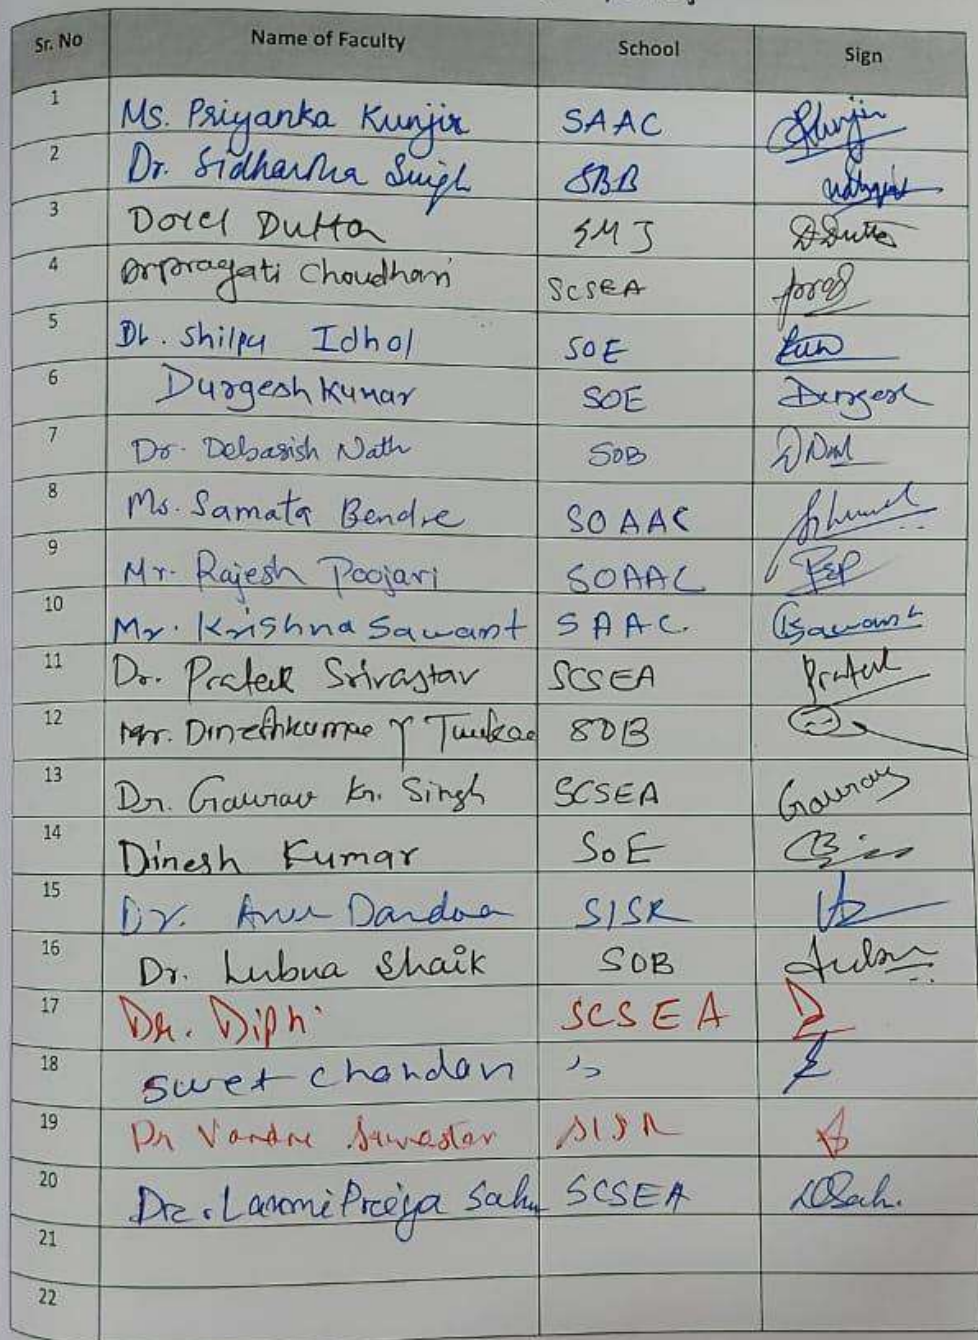 Sr. No Name of Faculty School Sign
1 Ms. Priyanka Kunjir SAAC Kunjir
2 Dr. Sidhartha Singh SBB
3 Dorel Dutta SMJ DDutta
4 Dr pragati Choudhari SCSEA prag
5 Dr. Shilpa Idhol SOE
6 Durgesh Kumar SOE Durgesh
7 Dr. Debasish Nath SOB
8 Ms. Samata Bendre SOAAC
9 Mr. Rajesh Poojari SOAAC
10 Mr. Krishna Sawant SAAC. Sawant
11 Dr. Prateek Srivastav SCSEA Prateek
12 Mr. Dineshkumar SOB
13 Dr. Gaurav Kr. Singh SCSEA Gaurav
14 Dinesh Kumar SoE
15 Dr. SISR
16 Dr. Lubna Shaik SOB
17 Dr. Dipti SCSEA
18 Swet chandan ,,
19 Dr SISR
20 Dr. Laxmi Preeya Sahu SCSEA
21
22